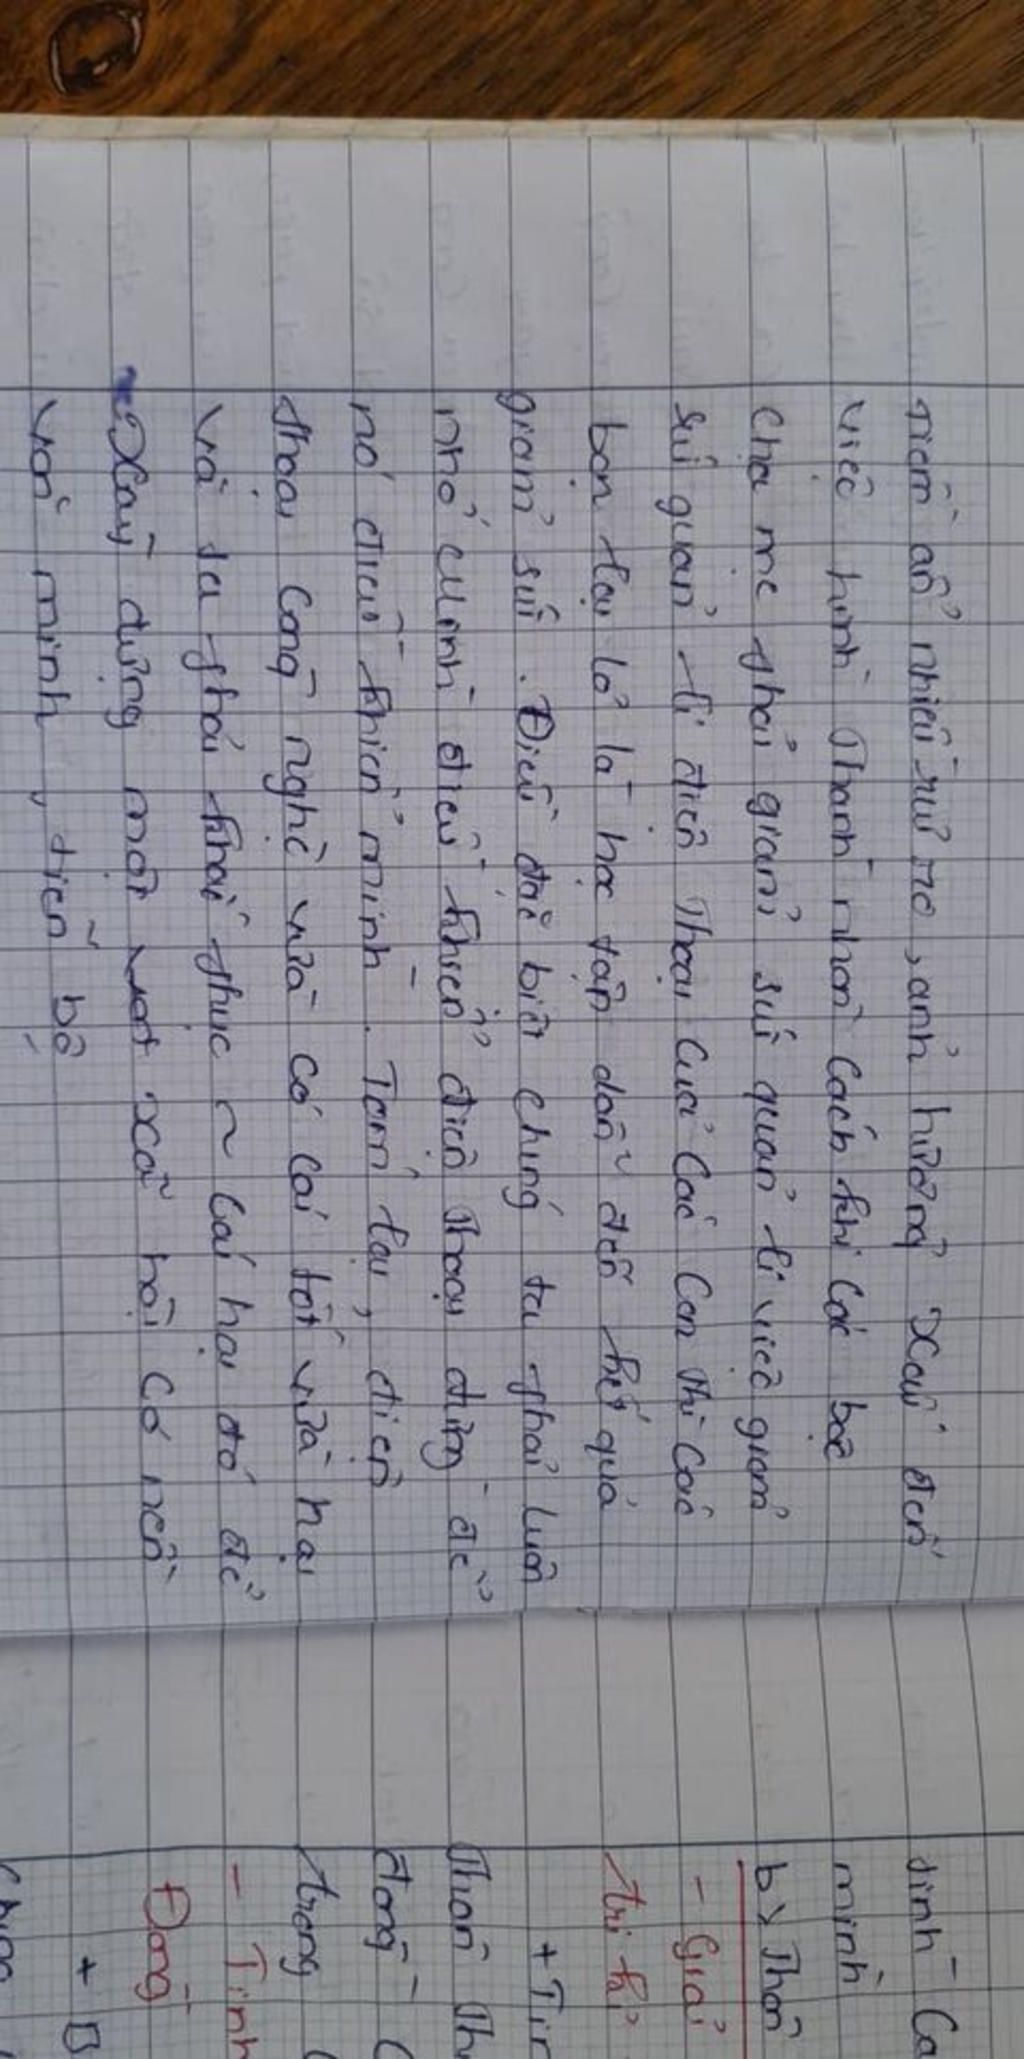 tiềm ẩn nhiều rủi ro, ảnh hưởng xấu đến
việc hình thành nhân cách khi các bậc
cha mẹ phải giảm sự quản lí việc giảm
sự quản lí điện thoại của các con thì các
bạn lại lơ là học tập dẫn đến kết quả
giảm sút. Điều đặc biệt chúng ta phải luôn
nhớ mình điều khiển điện thoại đừng để
nó điều khiển mình. Tóm lại, điện
thoại công nghệ vừa có cái tốt vừa hại
và ta phải khắc phục ~ cái hại đó để
xây dựng một xã hội có nền
văn minh, tiến bộ
tình cả
mình
b) Thân
- Giải
tri kỉ
+ Tìn
Thân Th
đồng
trong
- Tình
Đồng
+ B